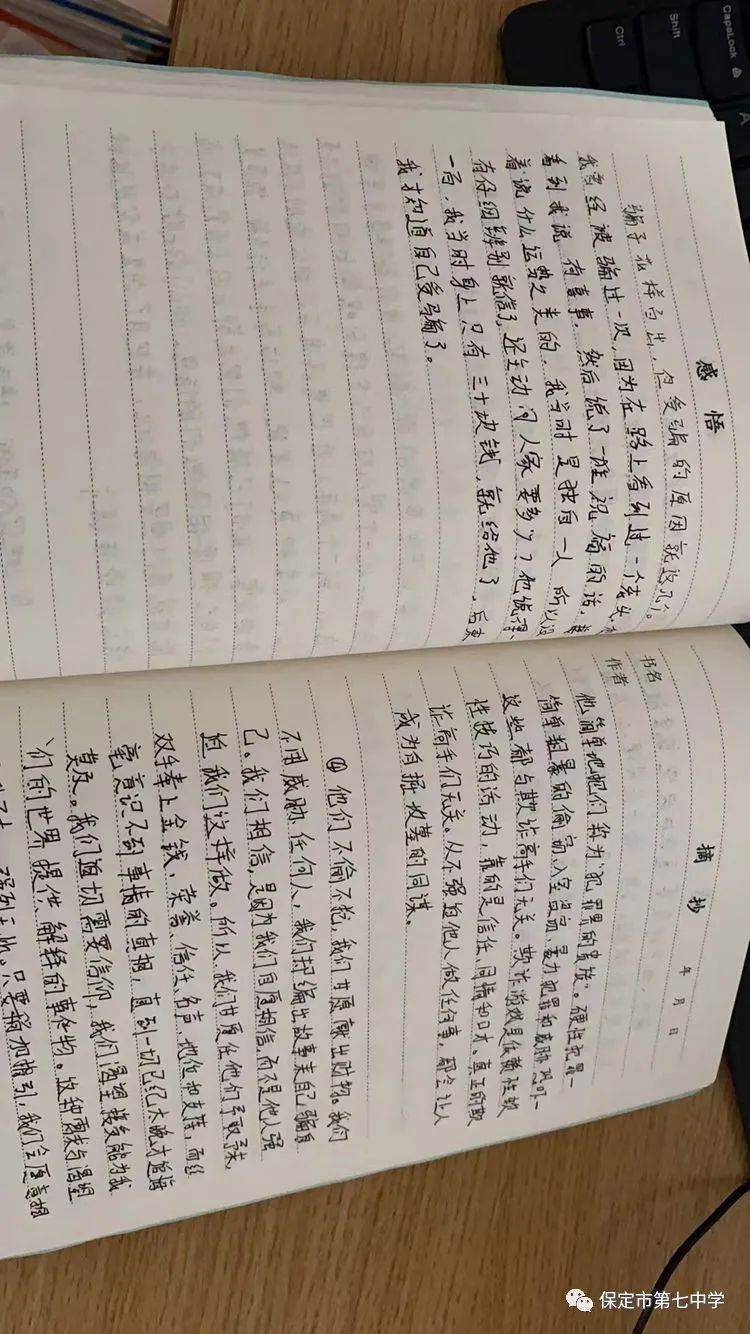 感悟
骗子花样百出，但受骗的原因就这几个。
我曾经被骗过一次，因为在路上看到过一个老头，
看到我说有喜事，然后说了一堆祝福的话，
着说什么运势之类的，我当时是独自一人，所以没
有仔细辨别就信了，还主动问人家要多少？他说得
一百，我当时身上只有三十块钱，就给他了，后来
我才知道自己受骗了。
摘抄
年 月 日
书名
作者
他简单地把他们称为“犯罪界的贵族”。硬性犯罪—
简单粗暴的偷窃、入室盗窃、暴力犯罪和威胁恐吓—
这些都与欺诈高手们无关。欺诈游戏是依赖性软
性技巧的活动，靠的是信任、同情和口才。真正的欺
诈高手们无关。从不强迫他人做任何事，都会让人
成为自掘坟墓的同谋。
④他们不偷不抢，我们甘愿献出财物。我们
不用威胁任何人，我们却编出故事来自己骗自
己。我们相信，是因为我们自愿相信，而不是他人强
迫我们这样做。所以，我们甘愿任他们予取予求，
双手奉上金钱、荣誉、信任、名声、地位和支持，而丝
毫意识不到事情的真相，直到一切已经太晚才追悔
莫及。我们迫切需要信仰，我们渴望接受能为我
们的世界提供解释的事物。这种需求与渴望
只要稍加指引，我们会愿意相
Ctrl
Shift
CapsLock
A
保定市第七中学